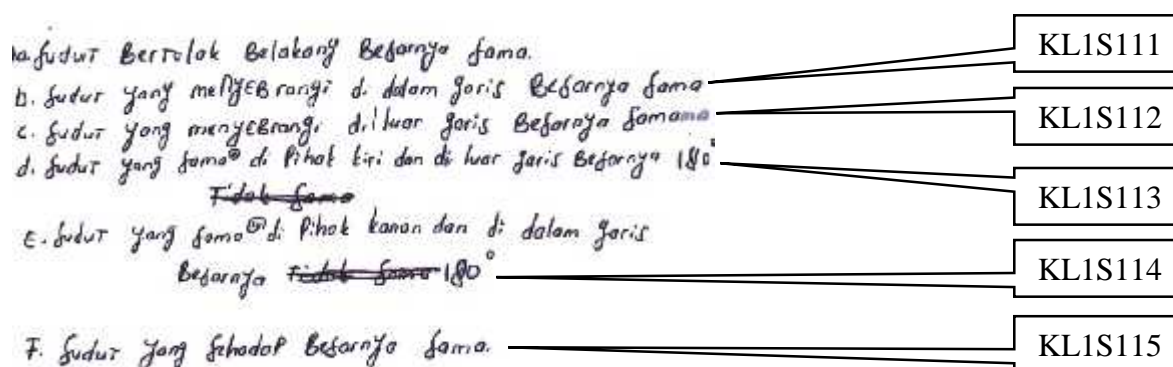 a. Sudut Bertolak Belakang Besarnya Sama.
KL1S111
b. Sudut yang menyEBrangi di dalam garis Besarnya Sama
KL1S112
c. Sudut yang menyEBrangi diluar garis Besarnya Samama
d. Sudut yang Sama² di Pihak kiri dan di luar garis Besarnya 180°
KL1S113
Tidak Sama
E. Sudut yang Sama² di Pihak kanan dan di dalam garis
Besarnya Tidak Sama 180°
KL1S114
F. Sudut yang Sehadap Besarnya Sama.
KL1S115